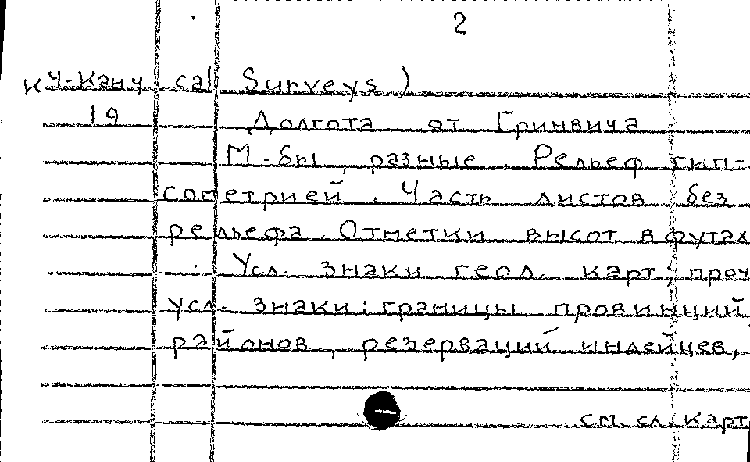 2
К9-Кану cal Surveys)
19 Долгота от Гринвича
М-бы разные. Рельеф гип-
сометрией. Часть листов без
рельефа. Отметки высот в футах
. Усл. знаки геол. карт; проч
усл. знаки: границы провинций
районов, резерваций индейцев,
см. сл. карт